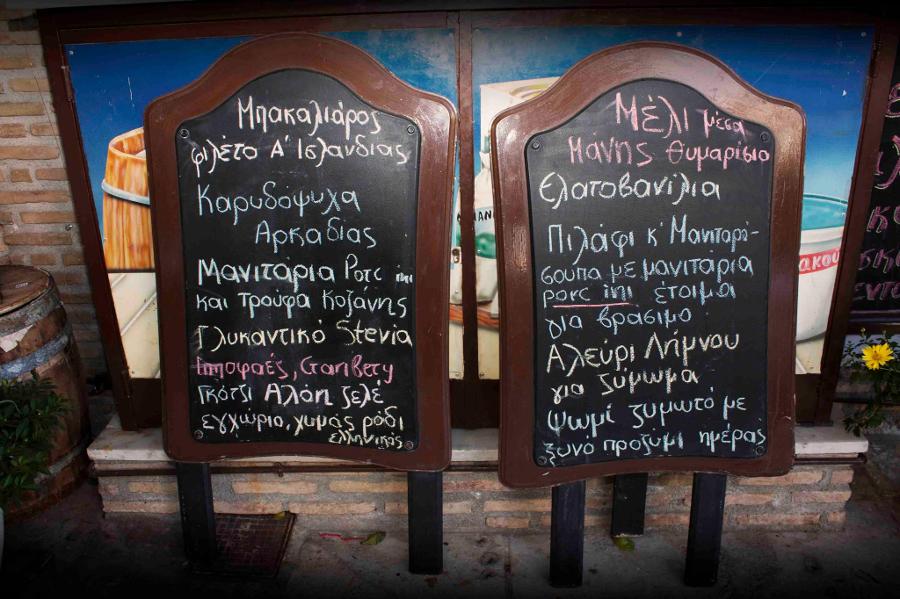 Μπακαλιάρος
φιλέτο Α' Ισλανδίας
Καρυδόψυχα
Αρκαδίας
Μανιτάρια Ροτς ίνι
και τρούφα Κοζάνης
Γλυκαντικό Stevia
Ιπποφαές, Cranbery
Γκότζι Αλόη ζελέ
εγχώριο, χυμός ρόδι
ελληνικός
Μέλι μέσα
Μάνης θυμαρίσιο
Ελατοβανίλια
Πιλάφι κ' Μανιταρό-
σουπα με μανιτάρια
ρorc ίnι έτοιμα
για βράσιμο
Αλεύρι Λήμνου
για ζύμωμα
Ψωμί ζυμωτό με
ξυνό προζύμι ημέρας